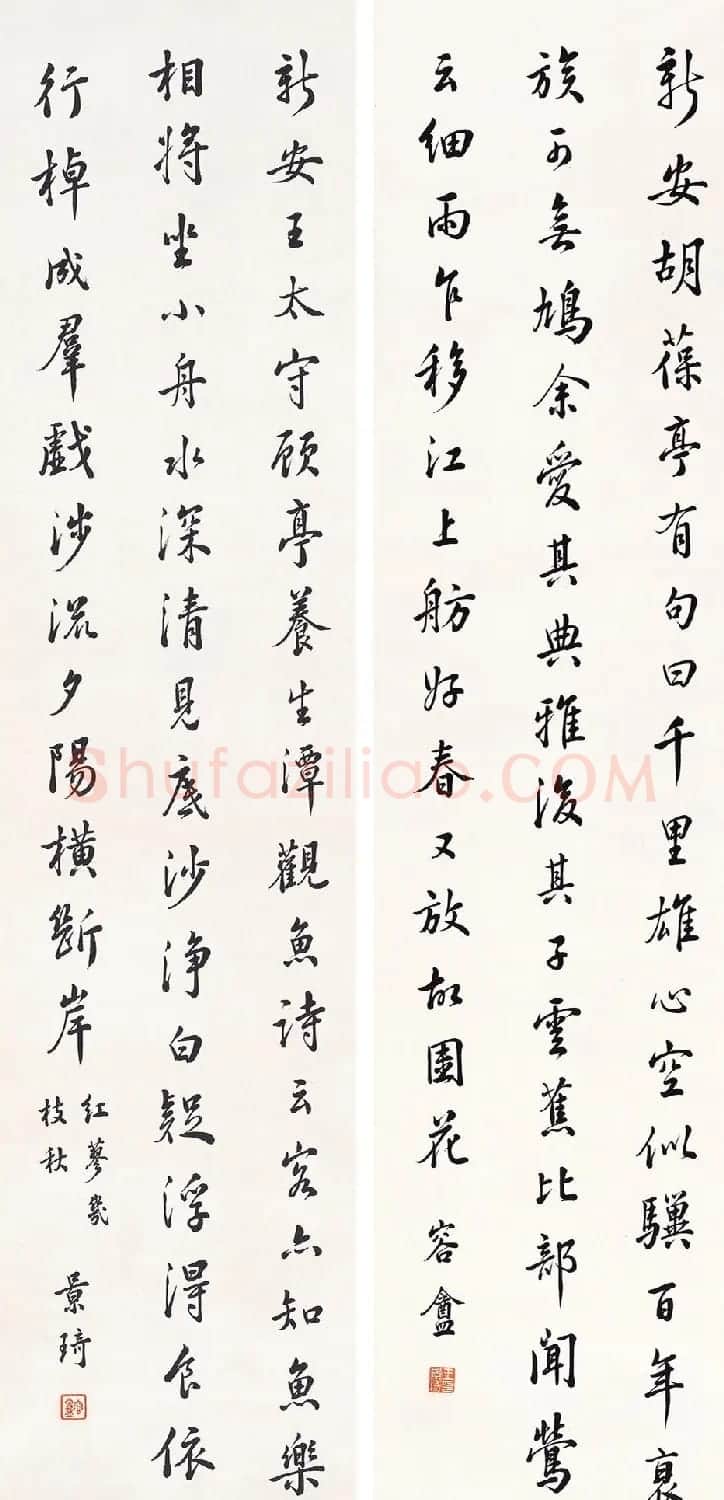 新安胡葆亭有句曰千里雄心空似驥百年衰
族可無鳩余愛其典雅後其子雲蕉比部聞鶯
云細雨乍移江上舫好春又放故園花
容盦
新安王太守顾亭養生潭觀魚詩云客亦知魚樂
相將坐小舟水深清見底沙淨白疑浮得食依
行棹成羣戲涉流夕陽橫斷岸
紅蓼幾
枝秋
景琦
Shufaziliao.COM